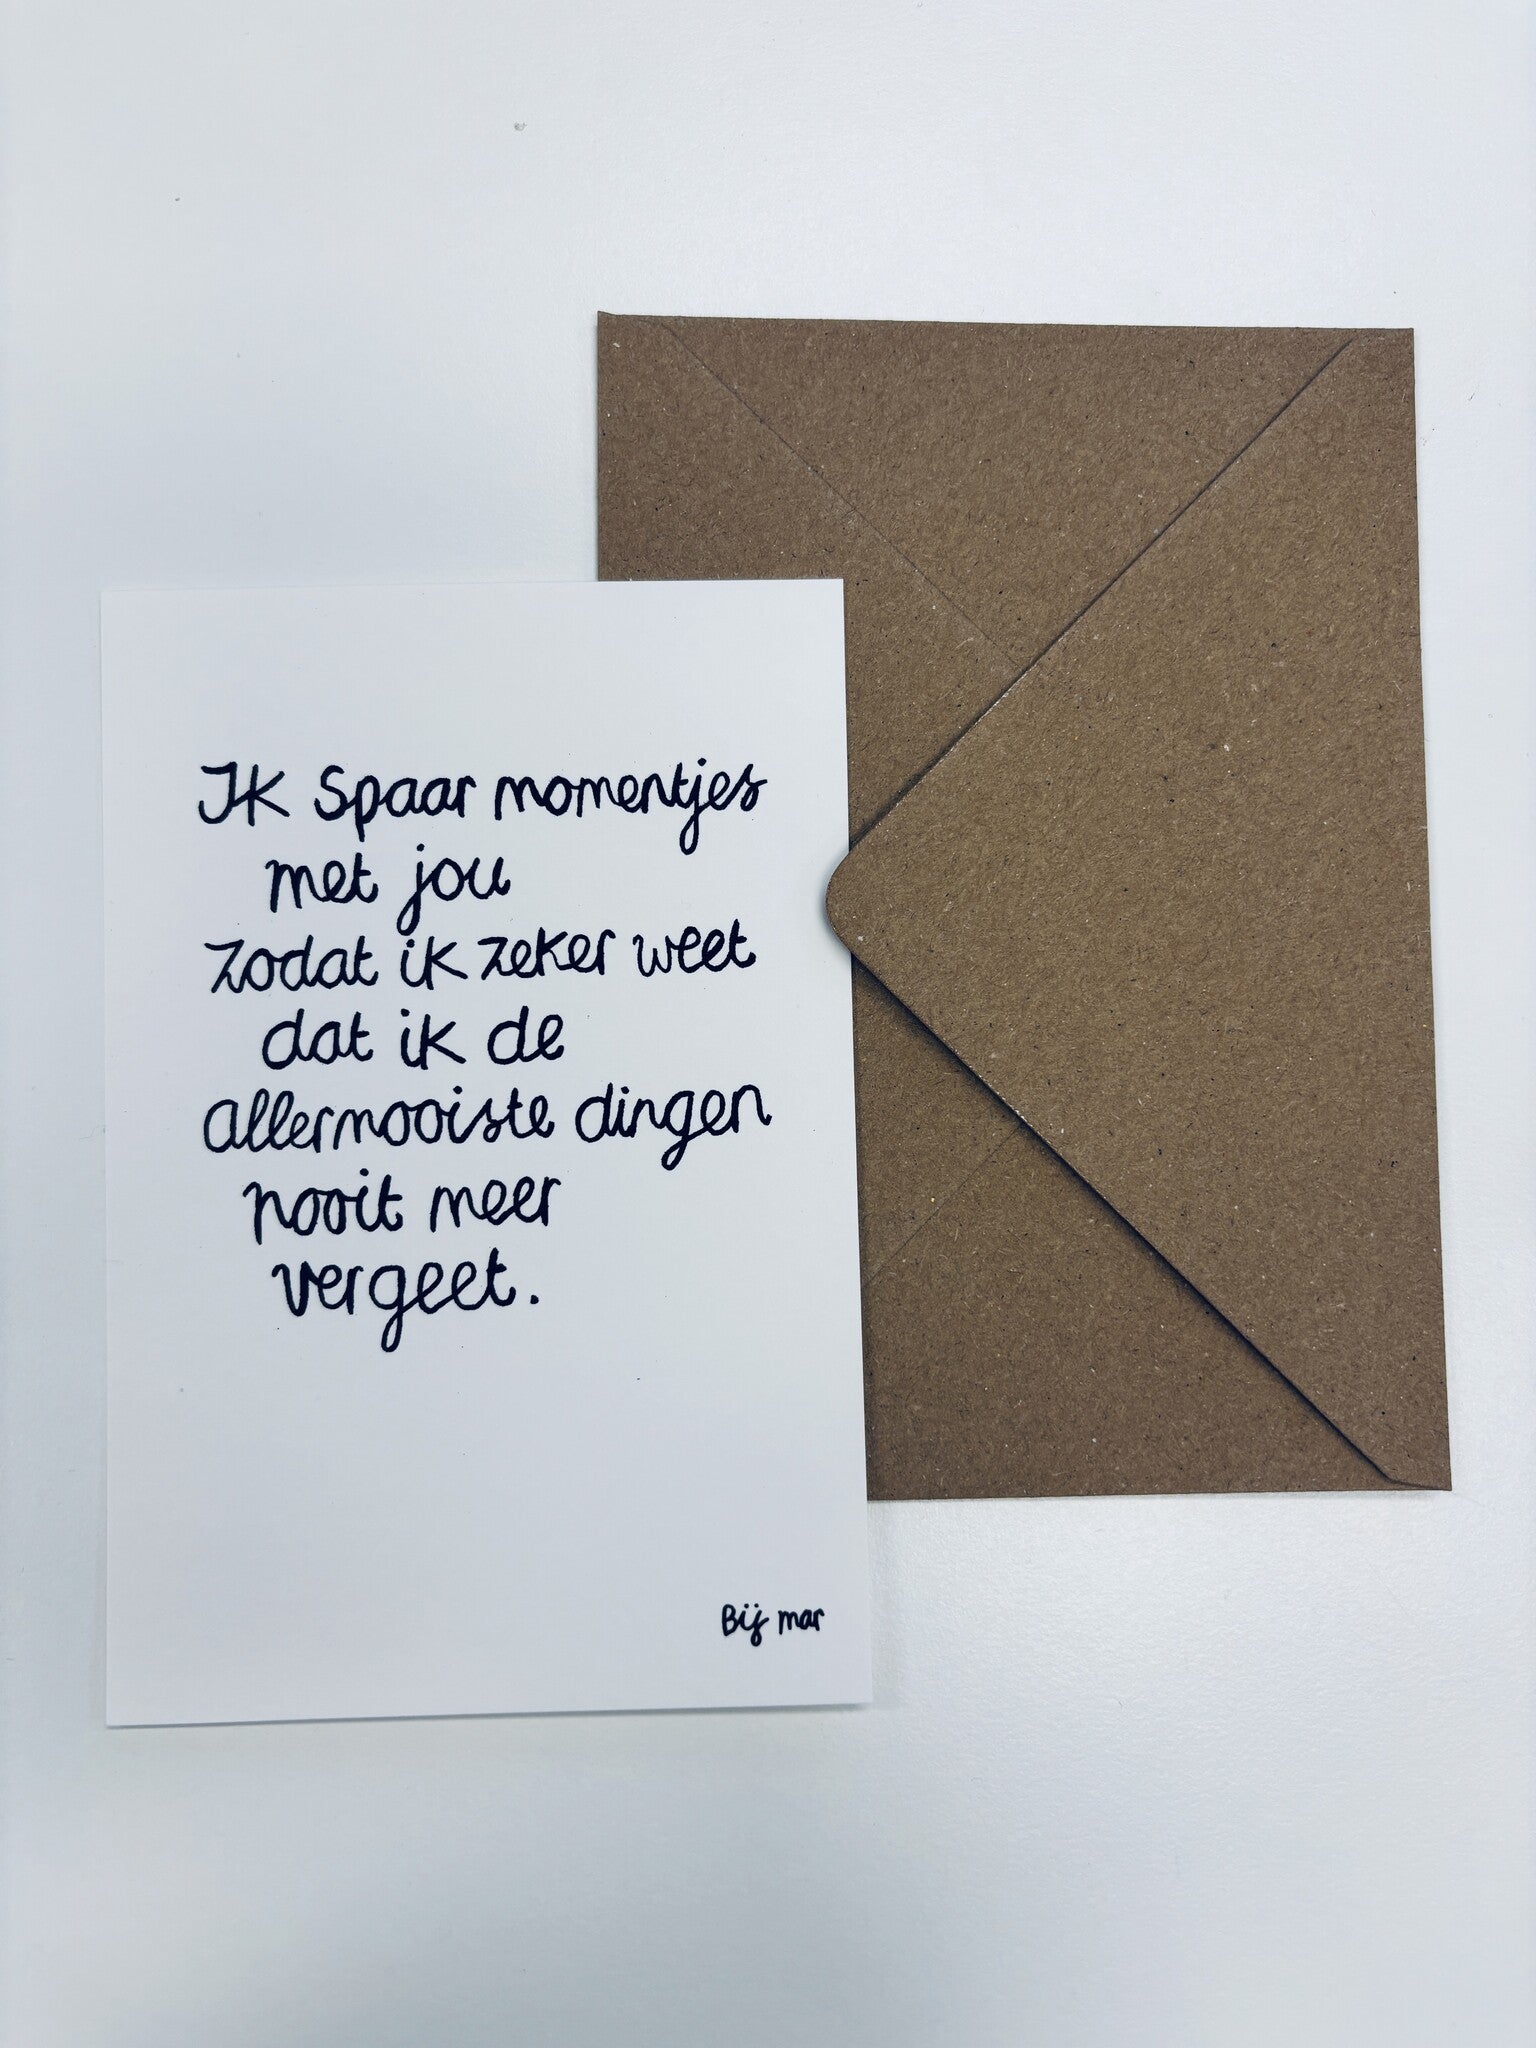 Ik Spaar momentjes
met jou
zodat ik zeker weet
dat ik de
allermooiste dingen
nooit meer
vergeet.
Bij mar